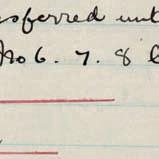 sferred unt
No 6. 7. 8